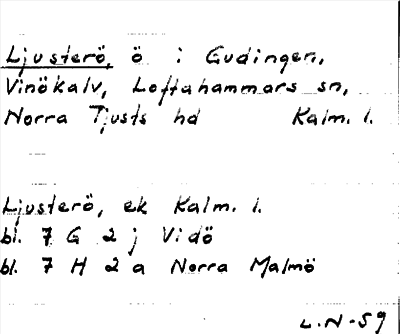 Ljusterö, ö i Gudingen,
Vinökalv, Loftahammars sn,
Norra Tjusts hd Kalm. l.
Ljusterö, ek Kalm. l.
bl. 7 G 2 j Vidö
bl. 7 H 2 a Norra Malmö
L.N-59